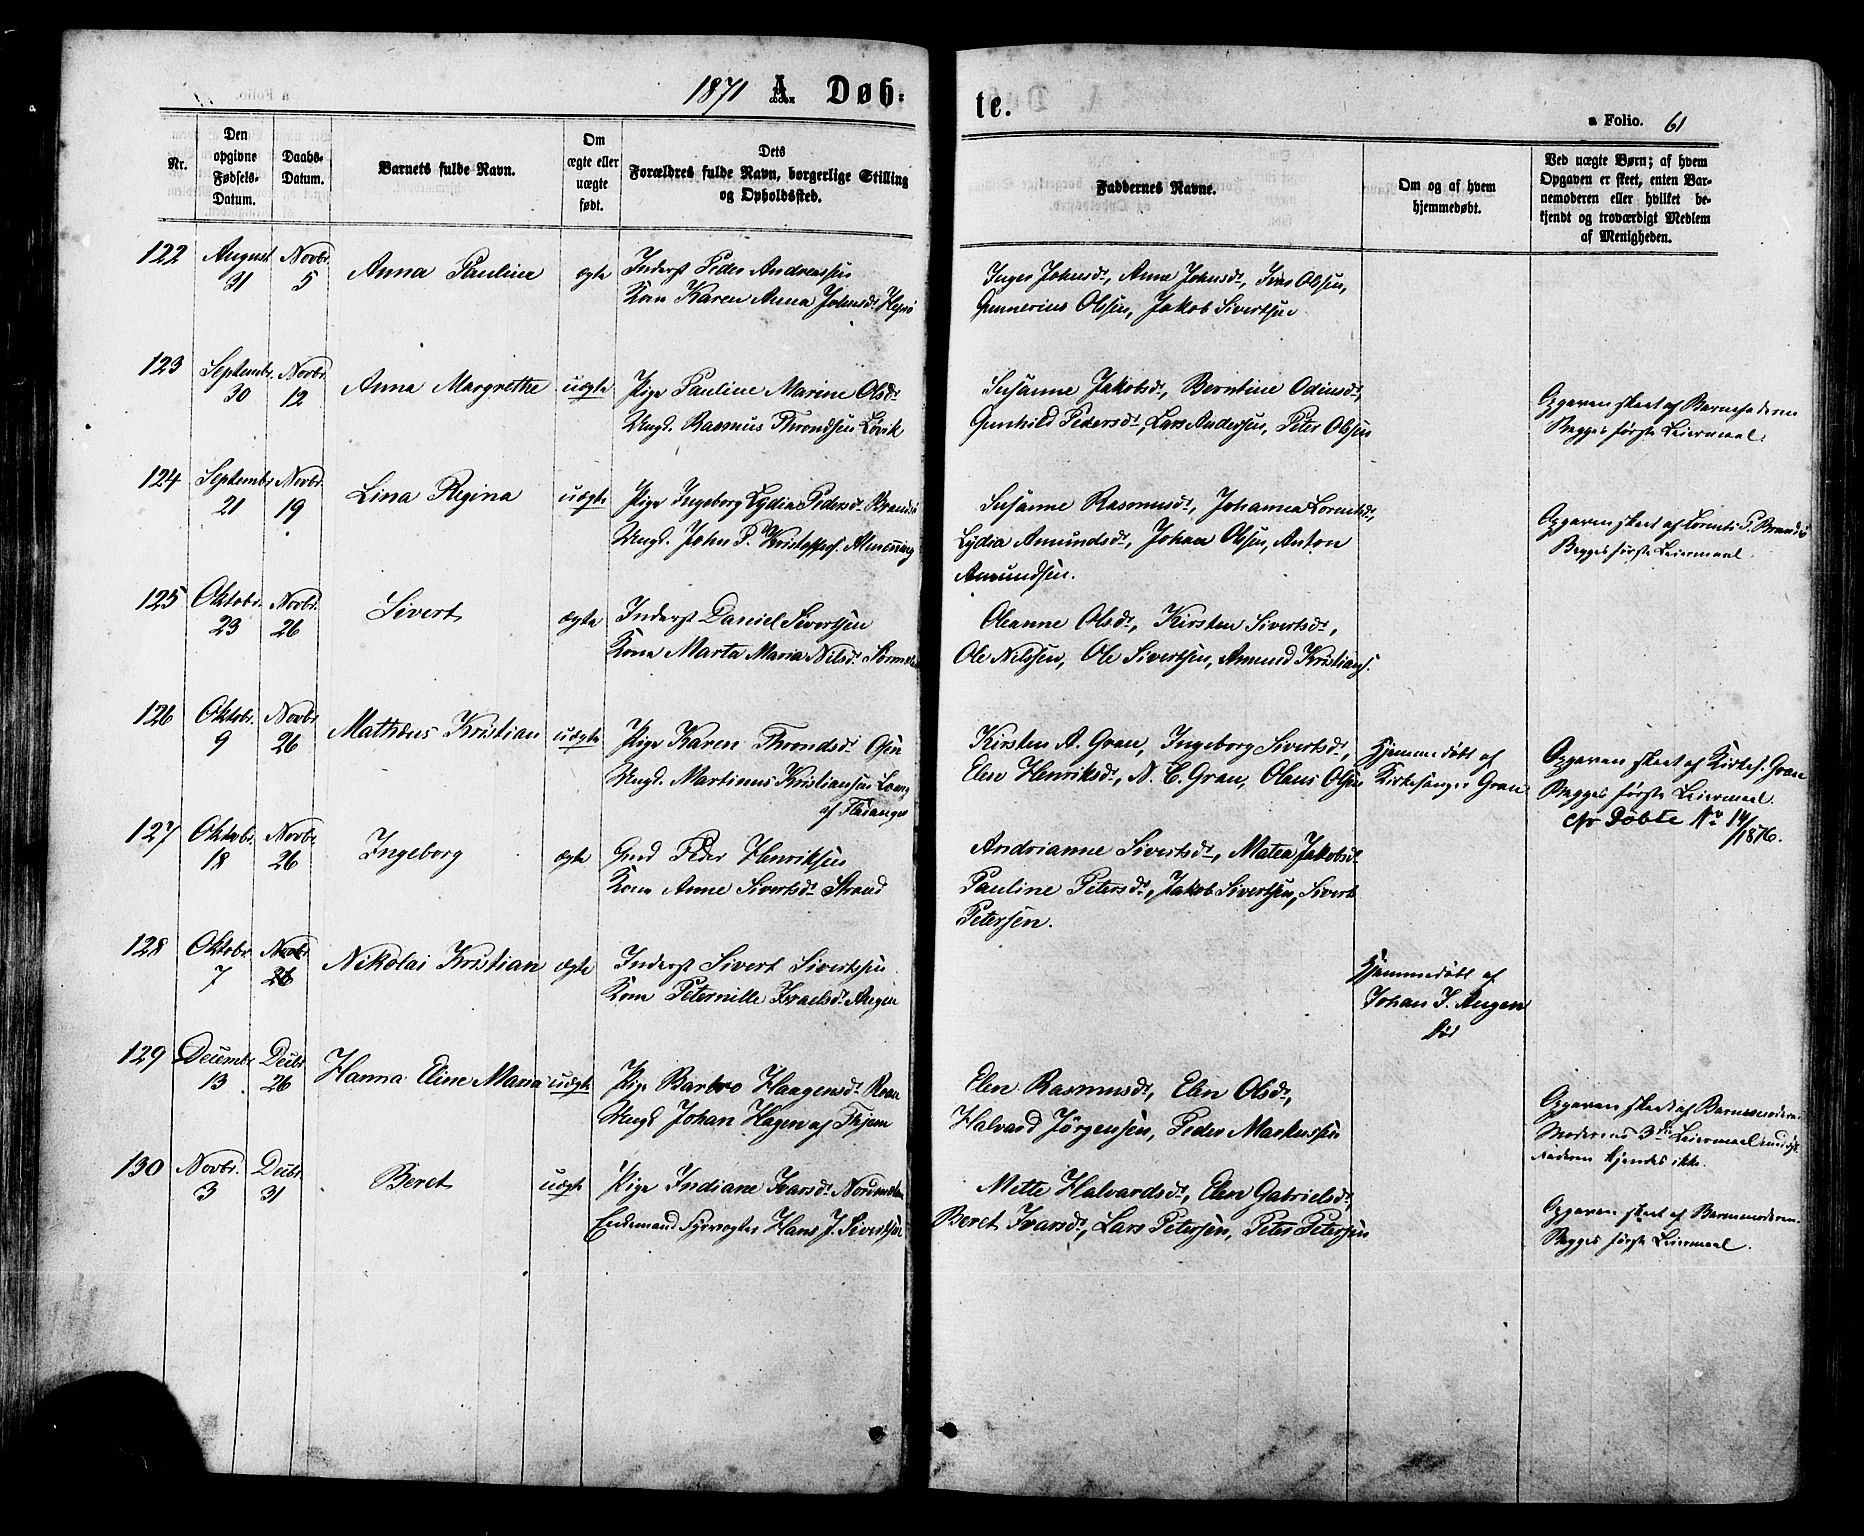 1871 A. Døb-
te.
a Folio. 61
Nr.
Den opgivne Fødsels-Datum.
Daabs-Datum.
Barnets fulde Navn.
Om ægte eller uægte født.
Dets Forældres fulde Navn, borgerlige Stilling og Opholdssted.
Faddernes Navne.
Om og af hvem hjemmedøbt.
Ved uægte Børn; af hvem
Opgaven er skeet, enten Bar-
nemoderen eller hvilket be-
kjendt og troværdigt Medlem
af Menigheden.
122 August 31 Novbr. 5 Anna Pauline ægte
Inderst Peder Andreassen
Kone Karen Anna Johnsdt.
Inger Johnsdt., Anne Johnsdt., Sivert Olsen,
Gunnerius Olsen, Jakob Sivertsen
123 Septembr. 30 Novbr. 12 Anna Margrethe uægte
Pige Pauline Marine Olsdt.
Ungk. Rasmus Throndsen Løvik
Susanne Jakobsdt., Berntine Odinsdt.,
Gunhild Pedersdt., Lars Andersen, Peter Olsen
Opgaven skeet af Barnefaderen
Begges første Leiermaal.
124 Septembr. 21 Novbr. 19 Lina Regina uægte
Pige Ingeborg Lydia Pedersdt. Brandsø
Ungk. John P. Kristoffers. Almenning
Susanne Rasmusdt., Johanna Lorntsdt.,
Lydia Amundsdt., Johan Olsen, Anton
Amundsen.
Opgaven skeet af Lornts P. Brandsø
Begges første Leiermaal.
125 Oktobr. 23 Novbr. 26 Sivert ægte
Inderst Daniel Sivertsen
Kone Marta Maria Nilsdt.
Oleanne Olsdt., Kirsten Sivertsdt.,
Ole Nilssen, Ole Sivertsen, Amund Kristians.
126 Oktobr. 9 Novbr. 26 Mathæus Kristian uægte
Pige Karen Throndsdt. Osen
Ungk. Martinus Kristiansen
af Fladanger
Kirsten A. Gran, Ingeborg Sivertsdt.,
Elen Henriksdt., N. C. Gran, Olaus Olsen
Hjemmedøbt af
Kirkesanger Gran
Opgaven skeet af Kirkes. Gran
Begges første Leiermaal.
cfr Døbte No 14/1876.
127 Oktobr. 18 Novbr. 26 Ingeborg ægte
Gmd Peder Henriksen
Kone Anne Sivertsdt. Strand
Andrianne Sivertsdt., Matea Jakobsdt.
Pauline Petersdt., Jakob Sivertsen, Sivert
Petersen.
128 Oktobr. 7 Novbr. 26 Nikolai Kristian ægte
Inderst Sivert Sivertsen
Kone Peternille Israelsdt. Angen
Hjemmedøbt af
Johan I. Angen
død
129 Decembr. 13 Decbr. 26 Hanna Eline Maria uægte
Pige Barbro Haagensdt.
Ungk Johan Hagen af
Elen Rasmusdt., Elen Olsdt.,
Halvard Jørgensen, Peder Markussen
Opgaven skeet af Barnemoderen.
Moderens 3die Leiermaal
Faderen kjendes ikke.
130 Novbr. 3 Decbr. 31 Beret uægte
Pige Indiane Ivarsdt.
Enkemand Fyrvogter Hans J. Sivertsen
Mette Halvardsdt., Elen Gabrielsdt.,
Beret Ivarsdt., Lars Petersen, Peter Petersen
Opgaven skeet af Barnemoderen.
Begges første Leiermaal.